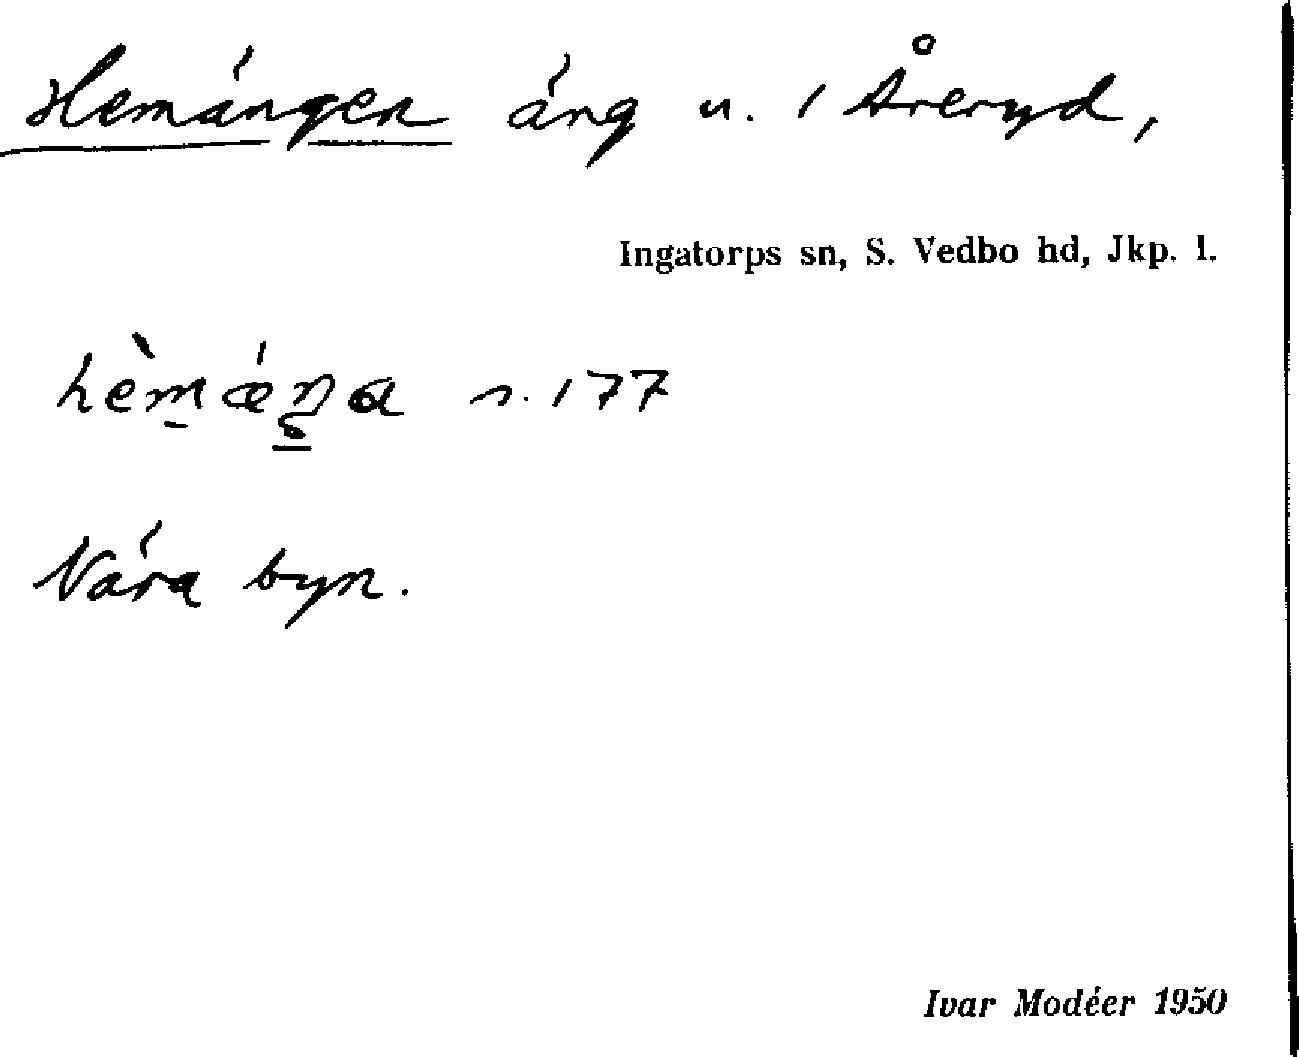 Hemängen äng u. 1 Åreryd,
Ingatorps sn, S. Vedbo hd, Jkp. l.
hèmǽŋa s. 177
Nära byn.
Ivar Modéer 1950